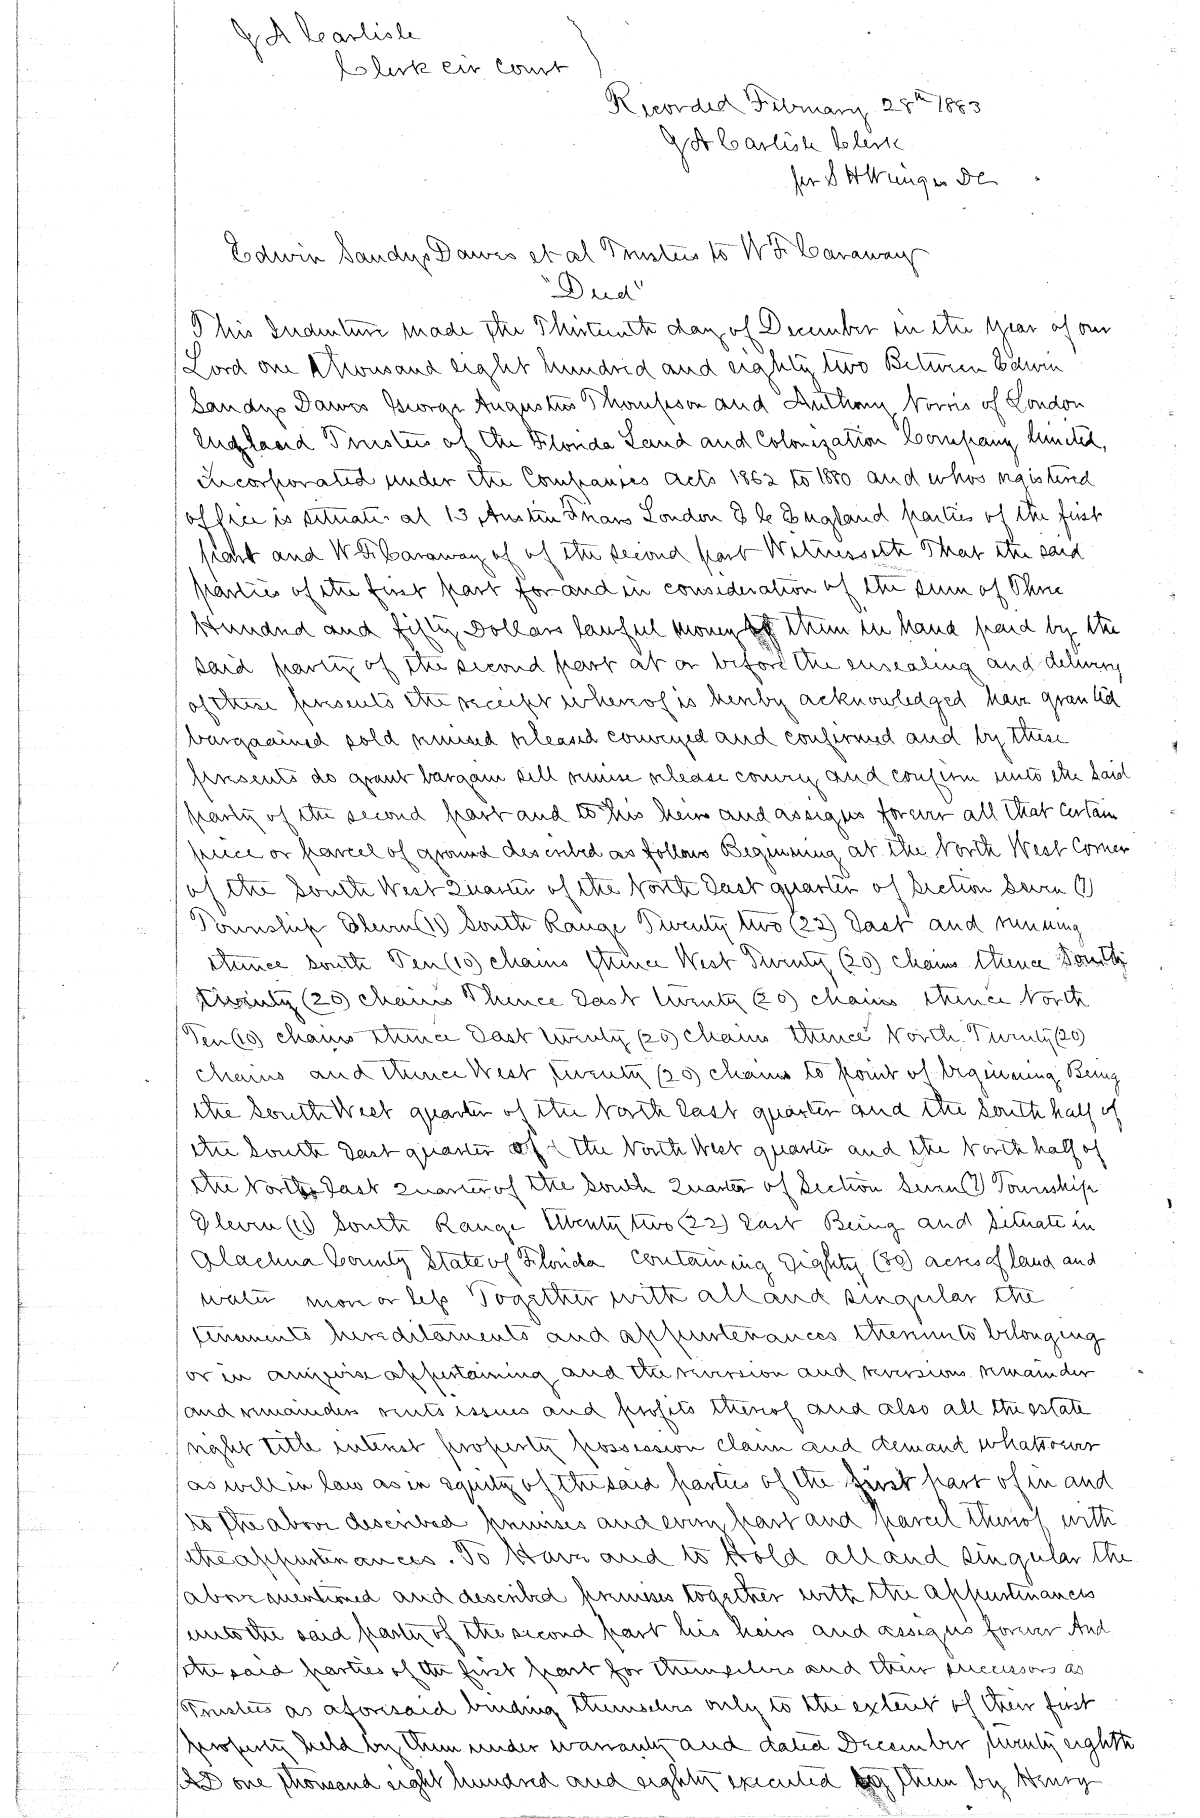 G A Carlisle
Clerk cir court
Recorded February 28th 1883
G A Carlisle Clerk
per S H Wienges DC
Edwin Sandys Dawes et al Trustees to W F Caraway
"Deed"
This Indenture made the Thirteenth day of December in the Year of our
Lord one thousand eight hundred and eighty two Between Edwin
Sandys Dawes George Augustus Thompson and Anthony Norris of London
England Trustees of the Florida Land and Colonization Company Limited,
incorporated under the Companies acts 1862 to 1880 and whos registered
office is situate at 13 Austin Friars London E C England parties of the first
part and W F Caraway of of the second part Witnesseth That the said
parties of the first part for and in consideration of the sum of Three
Hundred and fifty Dollars lawful money to them in hand paid by the
said party of the second part at or before the ensealing and delivery
of these presents the receipt whereof is hereby acknowledged have granted
bargaained sold remised released conveyed and confirmed and by these
presents do grant bargain sell remise release convey and confirm unto the said
party of the second part and to his heirs and assigns forever all that certain
piece or parcel of ground described as follows Beginning at the North West Corner
of the South West Quarter of the North East quarter of Section Seven (7)
Township Eleven (11) South Range Twenty two (22) East and running
thence south Ten (10) chains thence West Twenty (20) chains thence South
twenty (20) chains Thence East twenty (20) chains thence North
Ten (10) chains thence East twenty (20) chains thence North Twenty (20)
chains and thence West twenty (20) chains to point of beginning Being
the South West quarter of the North East quarter and the South half of
the South East quarter of the North West quarter and the North half of
the North East Quarter of the South Quarter of Section Seven (7) Township
Eleven (11) South Range twenty two (22) East Being and Situate in
Alachua County State of Florida containing Eighty (80) acres of land and
water more or less Together with all and singular the
tenements hereditaments and appurtenances thereunto belonging
or in anywise appertaining and the reversion and reversions remainder
and remainders rents issues and profits thereof and also all the estate
right title interest property possession claim and demand whatsoever
as well in law as in equity of the said parties of the first part of in and
to the above described premises and every part and parcel thereof with
the appurtenances. To Have and to Hold all and singular the
above mentioned and described premises together with the appurtenances
unto the said party of the second part his heirs and assigns forever And
the said parties of the first part for themselves and their successors as
Trustees as aforesaid binding themselves only to the extent of their first
property held by them under warranty and dated December twenty eighth
AD one thousand eight hundred and eighty executed by them by Henry